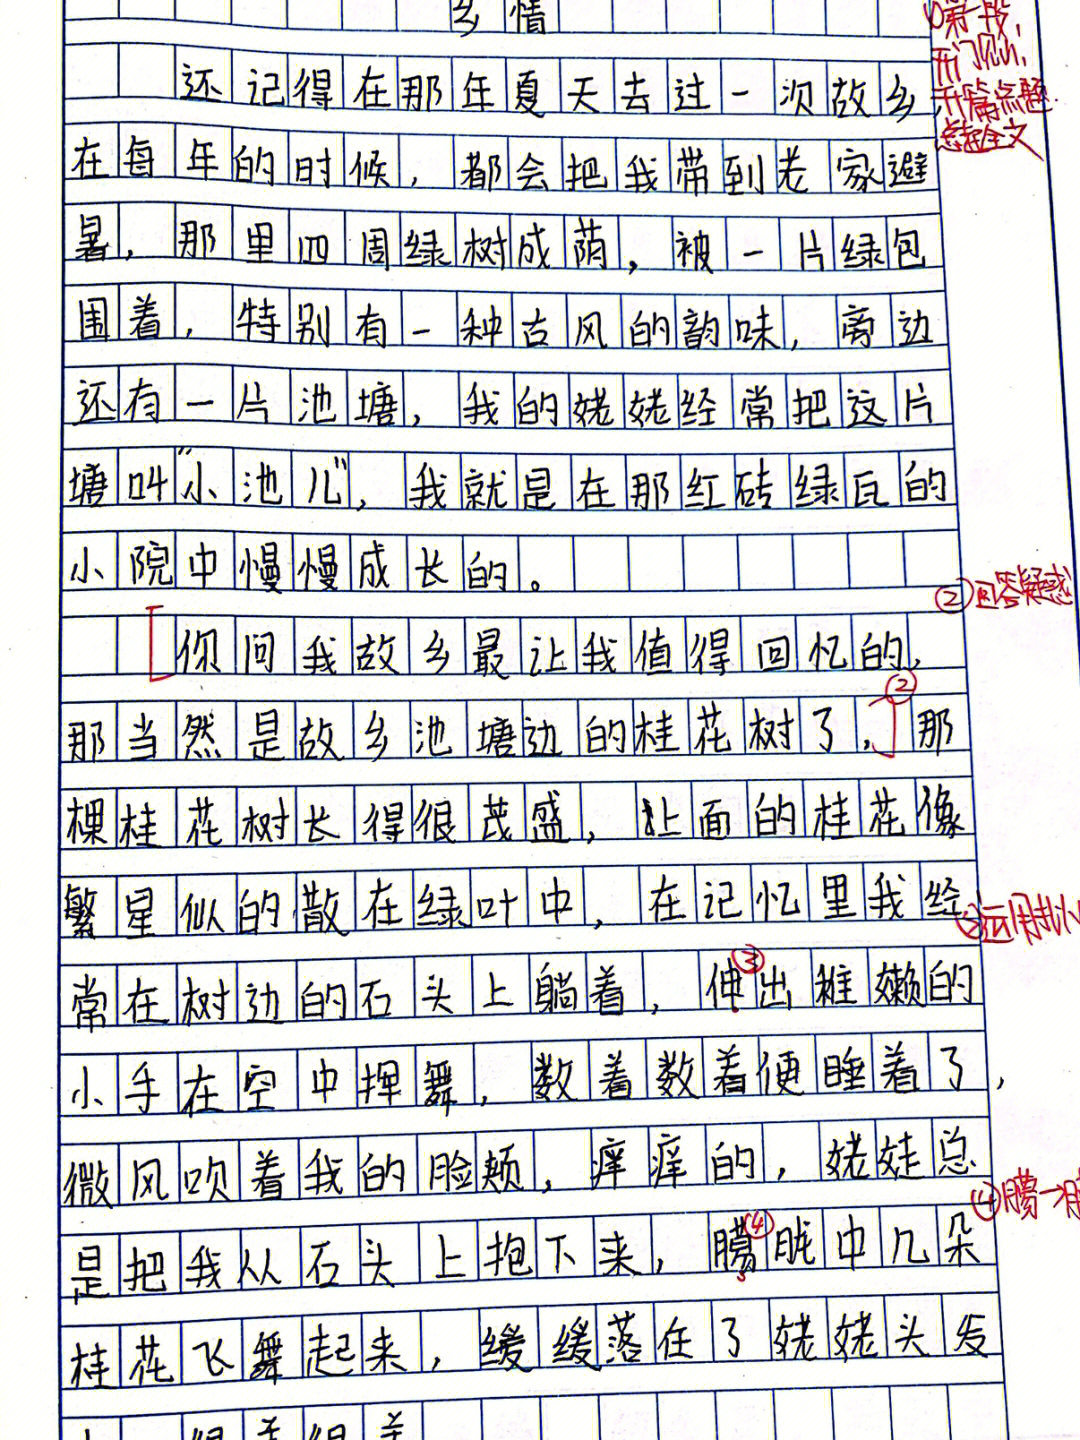 乡情
还记得在那年夏天去过一次故乡
在每年的时候，都会把我带到老家避
暑，那里四周绿树成荫，被一片绿包
围着，特别有一种古风的韵味，旁边
还有一片池塘，我的姥姥经常把这片
塘叫“小池儿”，我就是在那红砖绿瓦的
小院中慢慢成长的。
你问我故乡最让我值得回忆的，
那当然是故乡池塘边的桂花树了，那
棵桂花树长得很茂盛，上面的桂花像
繁星似的散在绿叶中，在记忆里我经
常在树边的石头上躺着，伸出稚嫩的
小手在空中挥舞，数着数着便睡着了，
微风吹着我的脸颊，痒痒的，姥姥总
是把我从石头上抱下来，朦胧中几朵
桂花飞舞起来，缓缓落在了姥姥头发
①第一段，
开门见山，
开篇点题
总起全文
②回答疑惑
②
③运用
③
④朦→
④